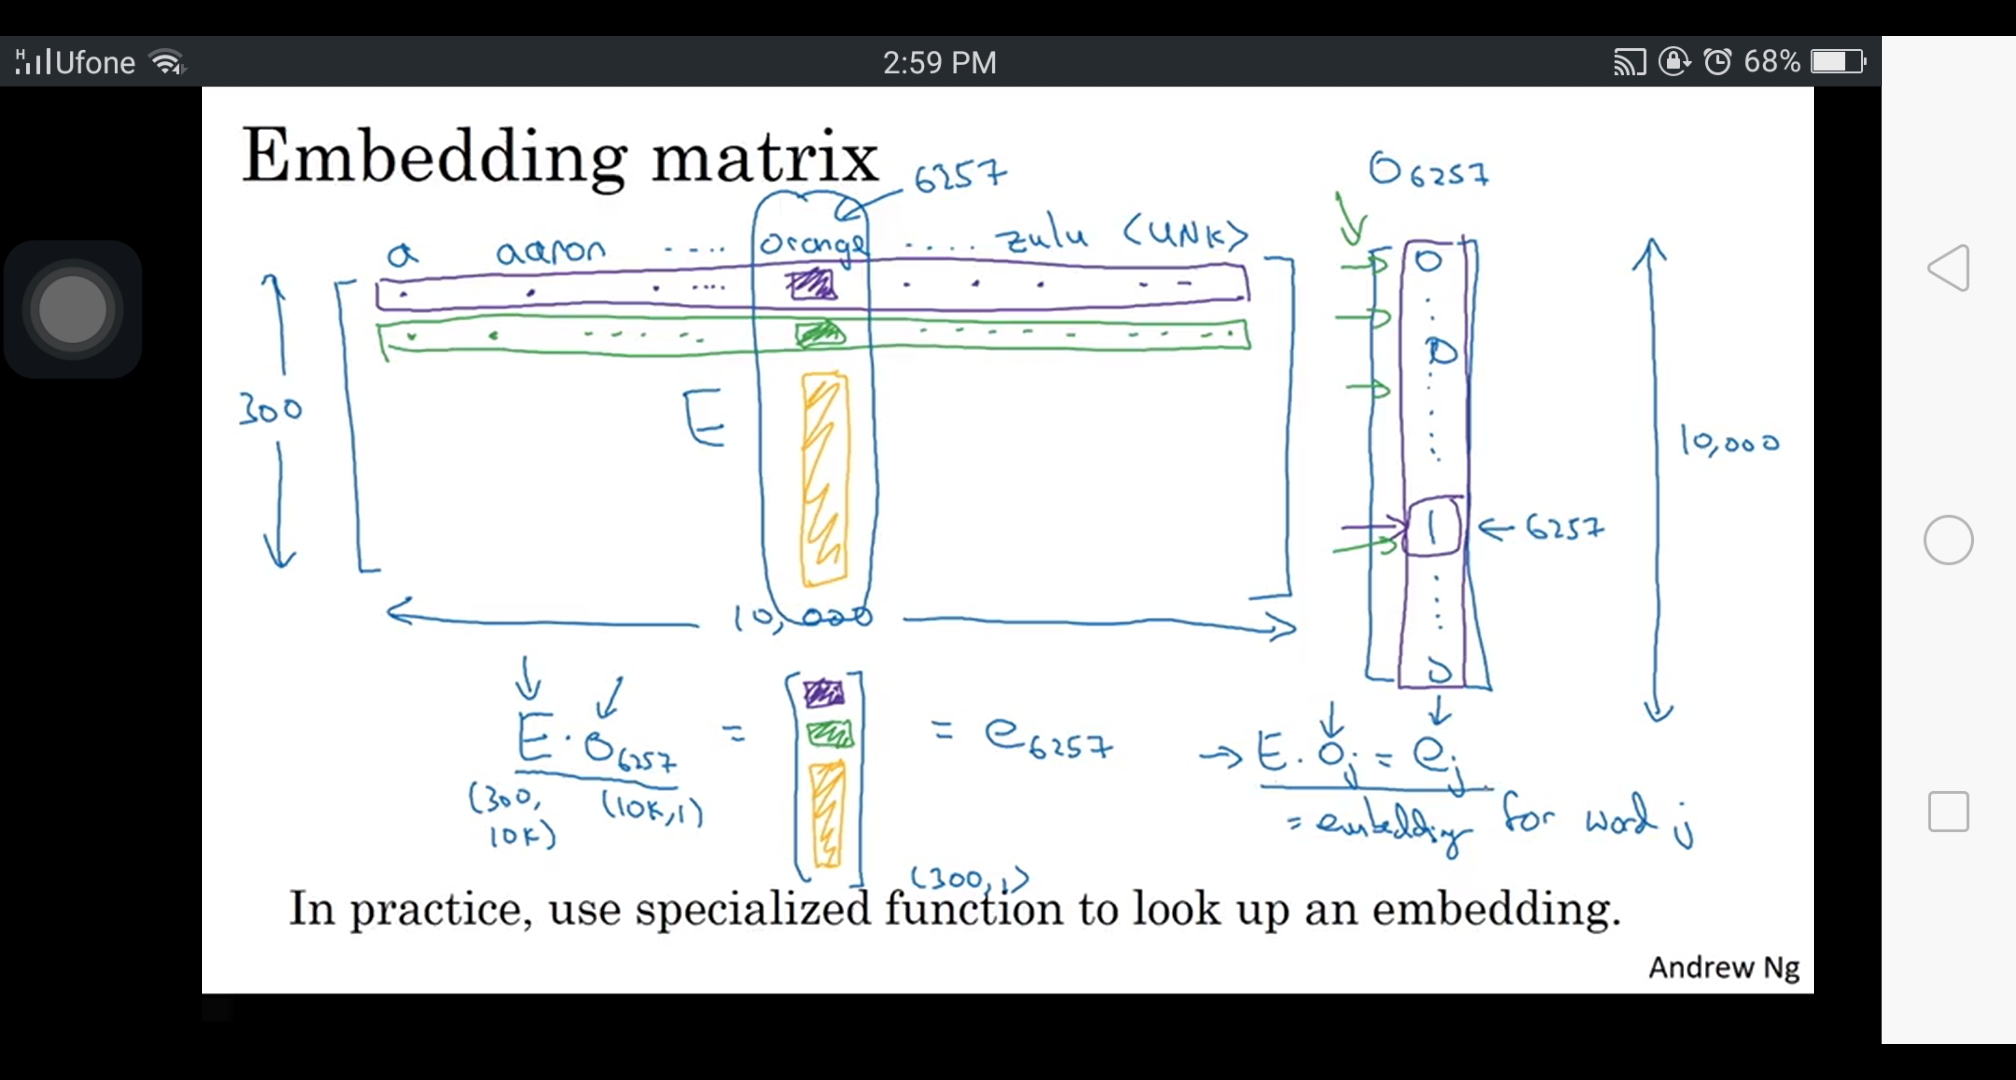 Ufone 2:59 PM 68%
Embedding matrix
6257
O6257
a aaron ..... orange ..... zulu <UNK>
300
E
10,000
0
0
1
← 6257
0
10,000
E · O6257 = [ ] = e6257
(300, 10K) (10K,1)
(300,1)
→ E · Oj = ej
= embedding for word j
In practice, use specialized function to look up an embedding.
Andrew Ng